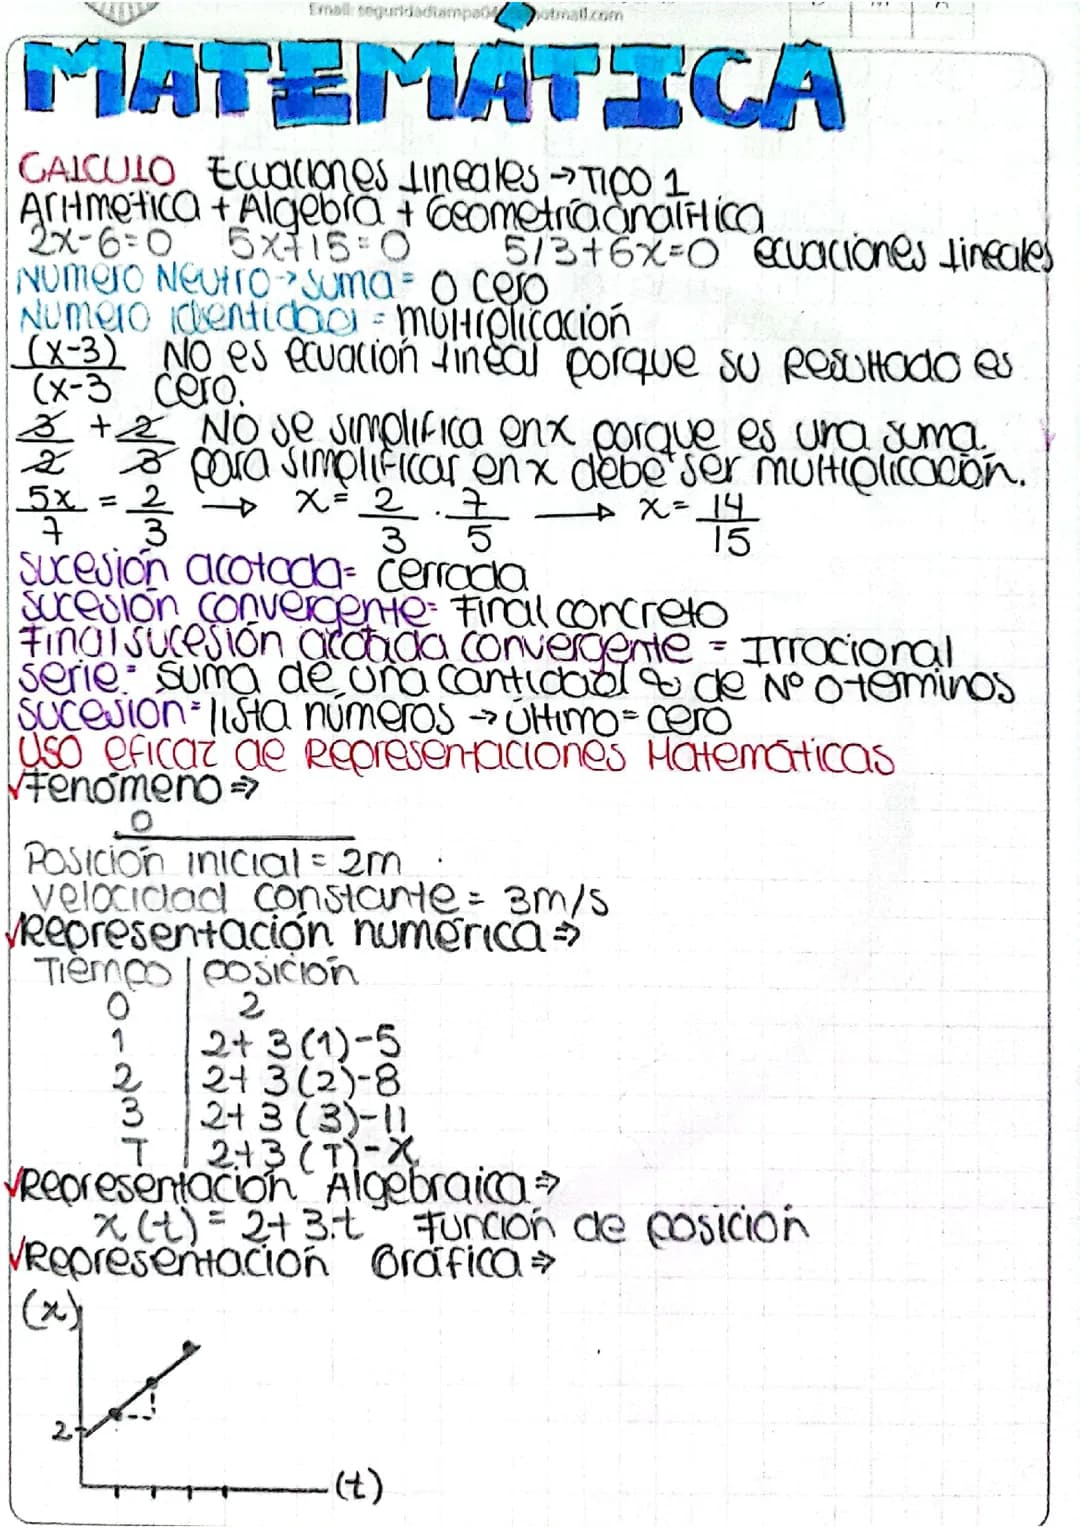 Email: seguridadtampa04 hotmail.com
MATEMÁTICA
CALCULO Ecuaciones Lineales → Tipo 1
Aritmética + Algebra + Geometría analítica
2x-6=0 5x+15=0 5/3+6x=0 ecuaciones lineales
Numero Neutro → suma = 0 cero
Numero identidad = multiplicación
(x-3) NO es ecuación lineal porque su Resultado es
(x-3 cero.
3 + 2 NO se simplifica en x porque es una suma.
2 3 para simplificar en x debe ser multiplicación.
5x = 2 → x = 2 . 7 → x = 14
7 3 3 5 15
Sucesión acotada = cerrada
Sucesión convergente = Final concreto
Final sucesión acotada convergente = Irracional
Serie = suma de una cantidad ∞ de Nº o terminos
Sucesion = lista números → último = cero
Uso eficaz de Representaciones Matemáticas
√Fenómeno ⇒
0
Posición inicial = 2m
velocidad constante = 3m/s
√Representación numérica ⇒
Tiempo | posición
0 2
1 2+3(1)-5
2 2+3(2)-8
3 2+3(3)-11
T 2+3(T)-x
√Representación Algebraica ⇒
x(t) = 2+3.t Función de posición
√Representación Gráfica ⇒
(x)
2
(t)